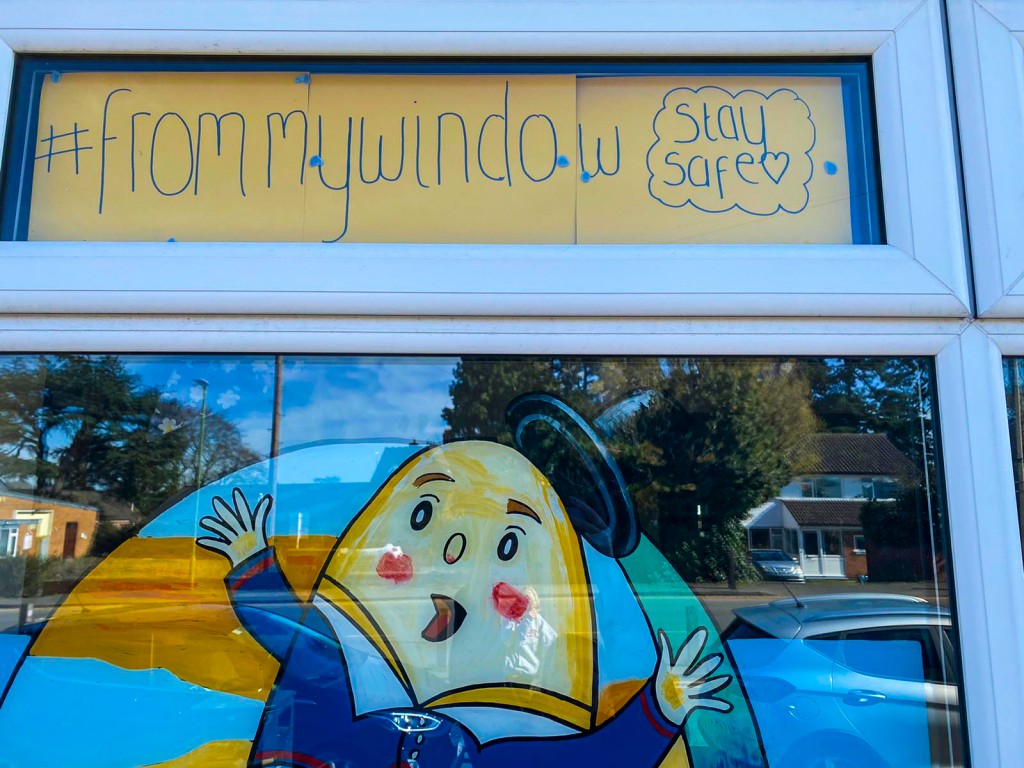 #frommywindow
Stay
safe♡